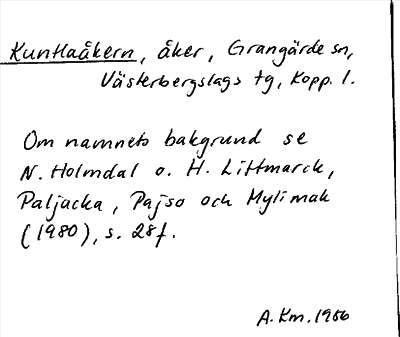 Kunttaåkern, åker, Grangärde sn,
Västerbergslags tg, Kopp. l.
Om namnets bakgrund se
N. Holmdal o. H. Littmarck,
Paljacka, Pajso och Mylimak
(1980), s. 28f.
A. Km. 1986